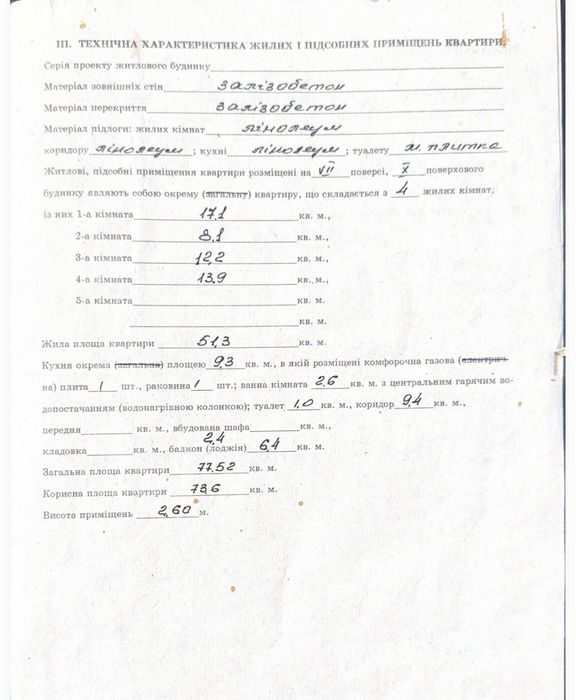 III. ТЕХНІЧНА ХАРАКТЕРИСТИКА ЖИЛИХ І ПІДСОБНИХ ПРИМІЩЕНЬ КВАРТИРИ.
Серія проекту житлового будинку
Матеріал зовнішніх стін залізобетон
Матеріал перекриття залізобетон
Матеріал підлоги: жилих кімнат лінолеум
коридору лінолеум ; кухні лінолеум ; туалету м. плитка
Житлові, підсобні приміщення квартири розміщені на VII поверсі, X поверхового
будинку являють собою окрему (загальну) квартиру, що складається з 4 жилих кімнат,
із них 1-а кімната 17,1 кв. м.,
2-а кімната 8,1 кв. м.,
3-а кімната 12,2 кв. м.,
4-а кімната 13,9 кв. м.,
5-а кімната кв. м.
кв. м.
Жила площа квартири 51,3 кв. м.
Кухня окрема (загальна) площею 9,3 кв. м., в якій розміщені комфорочна газова (електрич-
на) плита 1 шт., раковина 1 шт.; ванна кімната 2,6 кв. м. з центральним гарячим во-
допостачанням (водонагрівною колонкою); туалет 1,0 кв. м., коридор 9,4 кв. м.,
передня кв. м., вбудована шафа кв. м.,
кладовка кв. м., балкон (лоджія) 2,4 6,4 кв. м.
Загальна площа квартири 77,52 кв. м.
Корисна площа квартири 73,6 кв. м.
Висота приміщень 2,60 м.